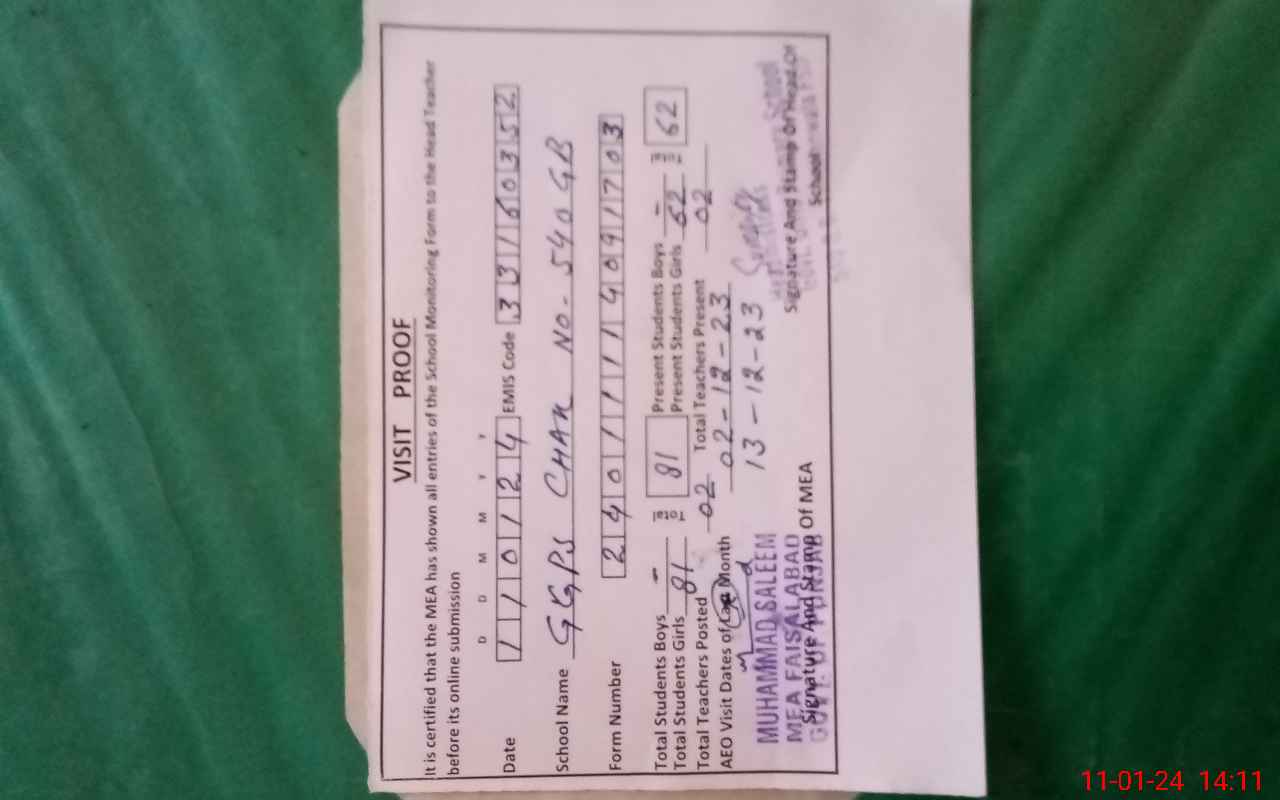 VISIT PROOF
It is certified that the MEA has shown all entries of the School Monitoring Form to the Head Teacher
before its online submission
D D M M Y Y
Date 110124 EMIS Code 33160352
School Name GGPS CHAK NO- 540 GB
Form Number 24011114091703
Total Students Boys - Total 81 Present Students Boys - Total 62
Total Students Girls 81 Present Students Girls 62
Total Teachers Posted 02 Total Teachers Present 02
AEO Visit Dates of Last Month 02-12-23
13-12-23
MUHAMMAD SALEEM
MEA FAISALABAD
GOVT. OF PUNJAB
Signature And Stamp Of MEA
Signature And Stamp Of Head Of
School
11-01-24 14:11